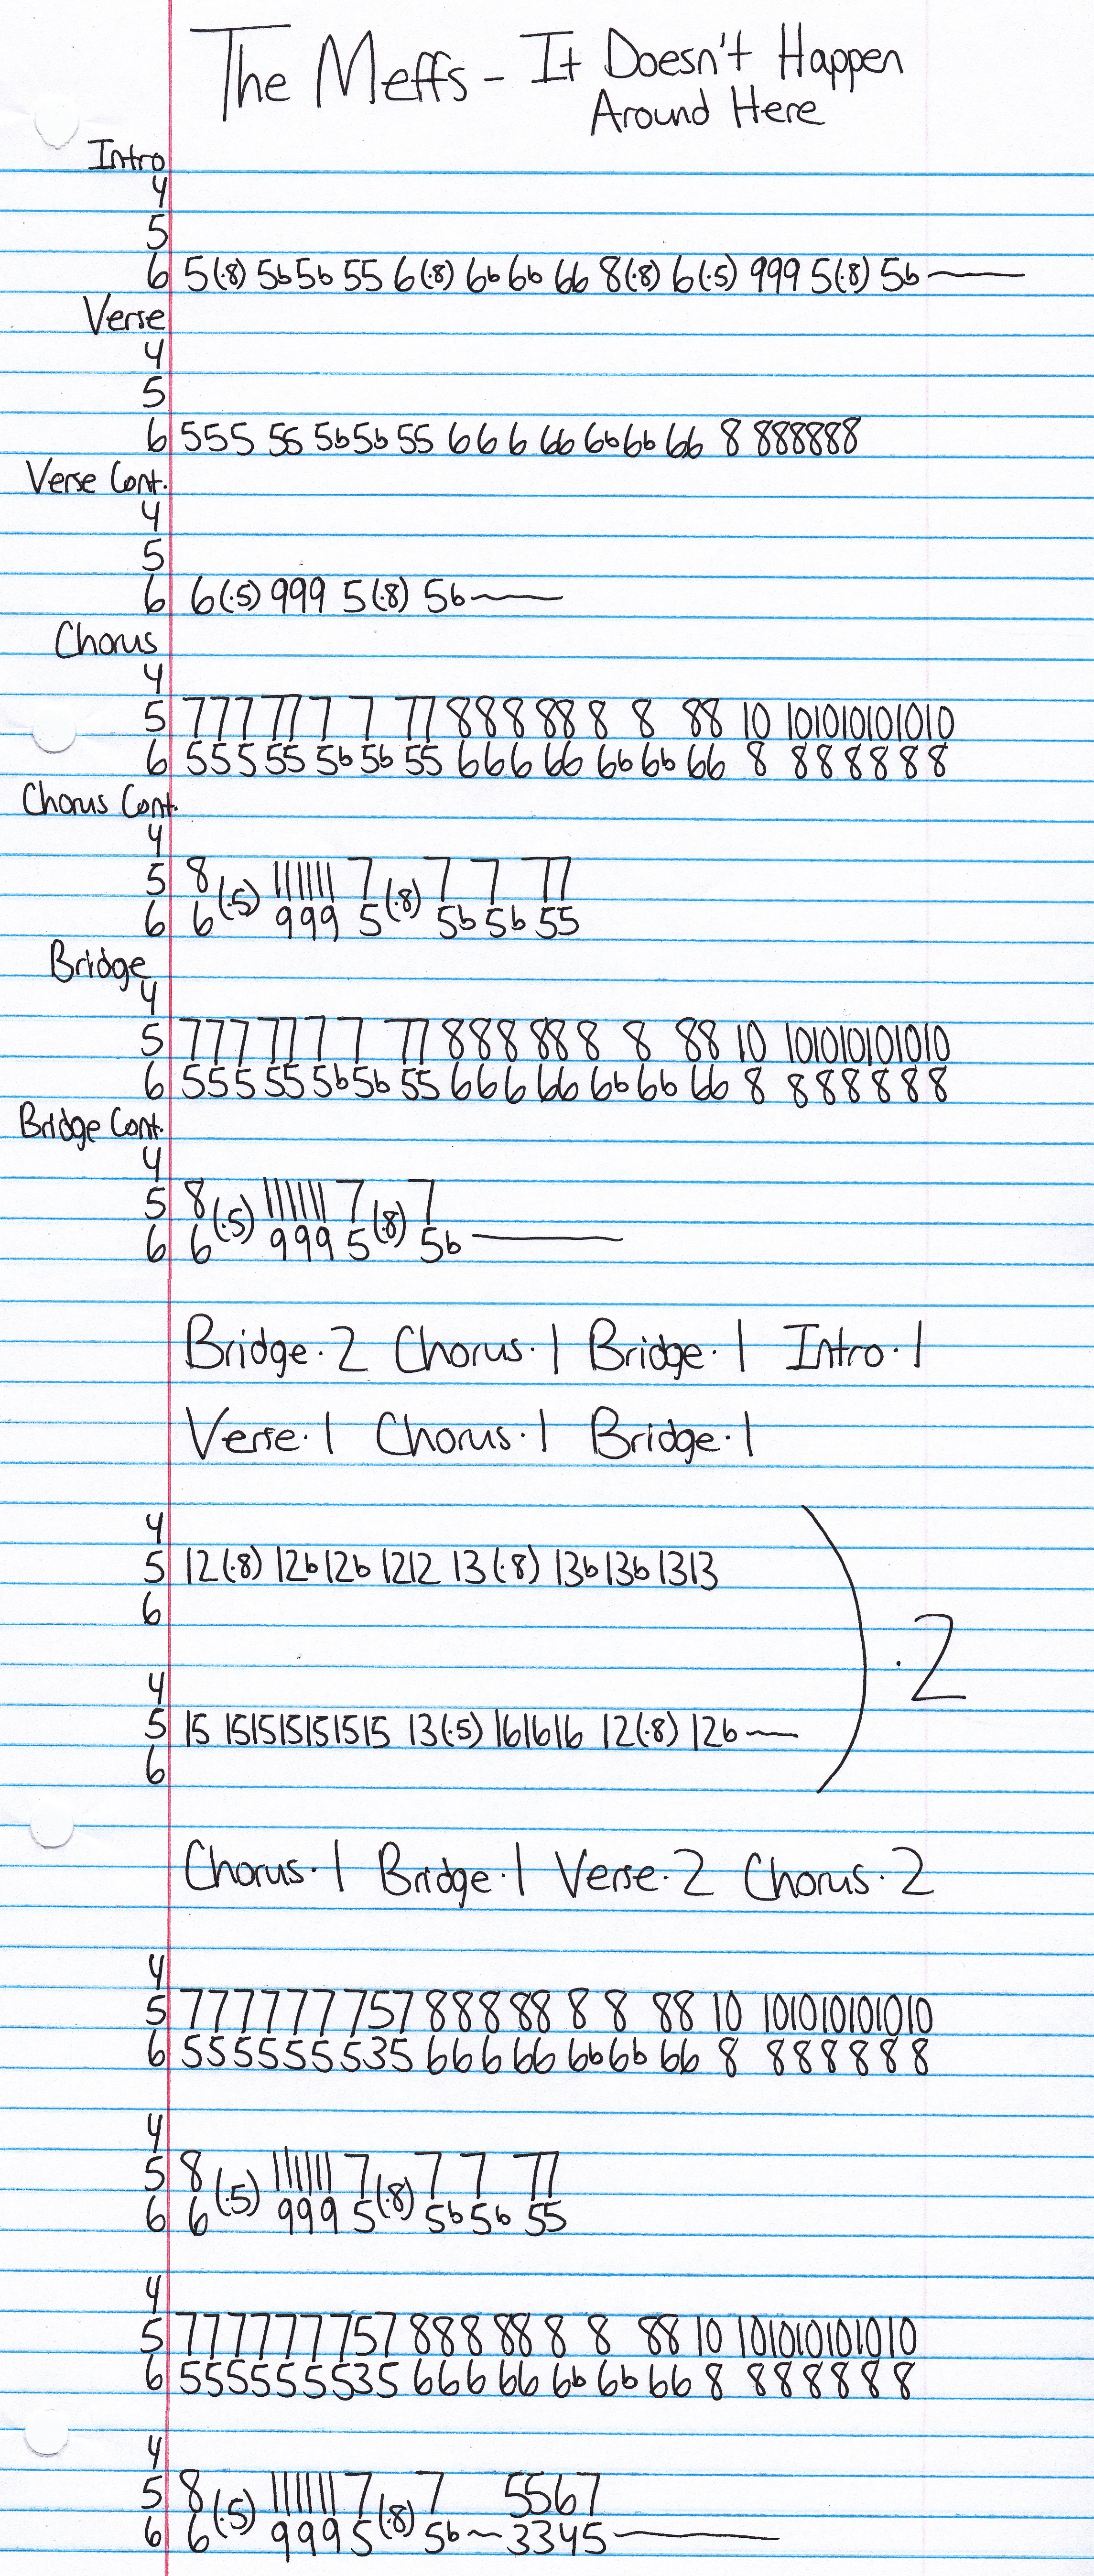 The Meffs - It Doesn't Happen
Around Here
Intro
4
5
6 5(·8) 5b5b 55 6(·8) 6b 6b 66 8(·8) 6(·5) 999 5(·8) 5b——
Verse
4
5
6 555 55 5b5b 55 666 66 6b6b 66 8 888888
Verse Cont.
4
5
6 6(·5) 999 5(·8) 5b——
Chorus
4
5 777 77 7 7 77 888 88 8 8 88 10 101010101010
6 555 55 5b 5b 55 666 66 6b 6b 66 8 888888
Chorus Cont.
4
5 8 (·5) 111111 7 (·8) 7 7 77
6 6 999 5 5b 5b 55
Bridge
4
5 777 77 7 7 77 888 88 8 8 88 10 101010101010
6 555 55 5b5b 55 666 66 6b 6b 66 8 888888
Bridge Cont.
4
5 8 (·5) 111111 7 (·8) 7
6 6 999 5 5b ——
Bridge·2 Chorus·1 Bridge·1 Intro·1
Verse·1 Chorus·1 Bridge·1
4
5 12(·8) 12b12b 1212 13(·8) 13b13b 1313
6
·2
4
5 15 151515151515 13(·5) 161616 12(·8) 12b——
6
Chorus·1 Bridge·1 Verse·2 Chorus·2
4
5 777777757 888 88 8 8 88 10 101010101010
6 555555535 666 66 6b6b 66 8 888888
4
5 8 (·5) 111111 7 (·8) 7 7 77
6 6 999 5 5b 5b 55
4
5 777777757 888 88 8 8 88 10 101010101010
6 555555535 666 66 6b 6b 66 8 888888
4
5 8 (·5) 111111 7 (·8) 7 5567
6 6 999 5 5b ~ 3345——